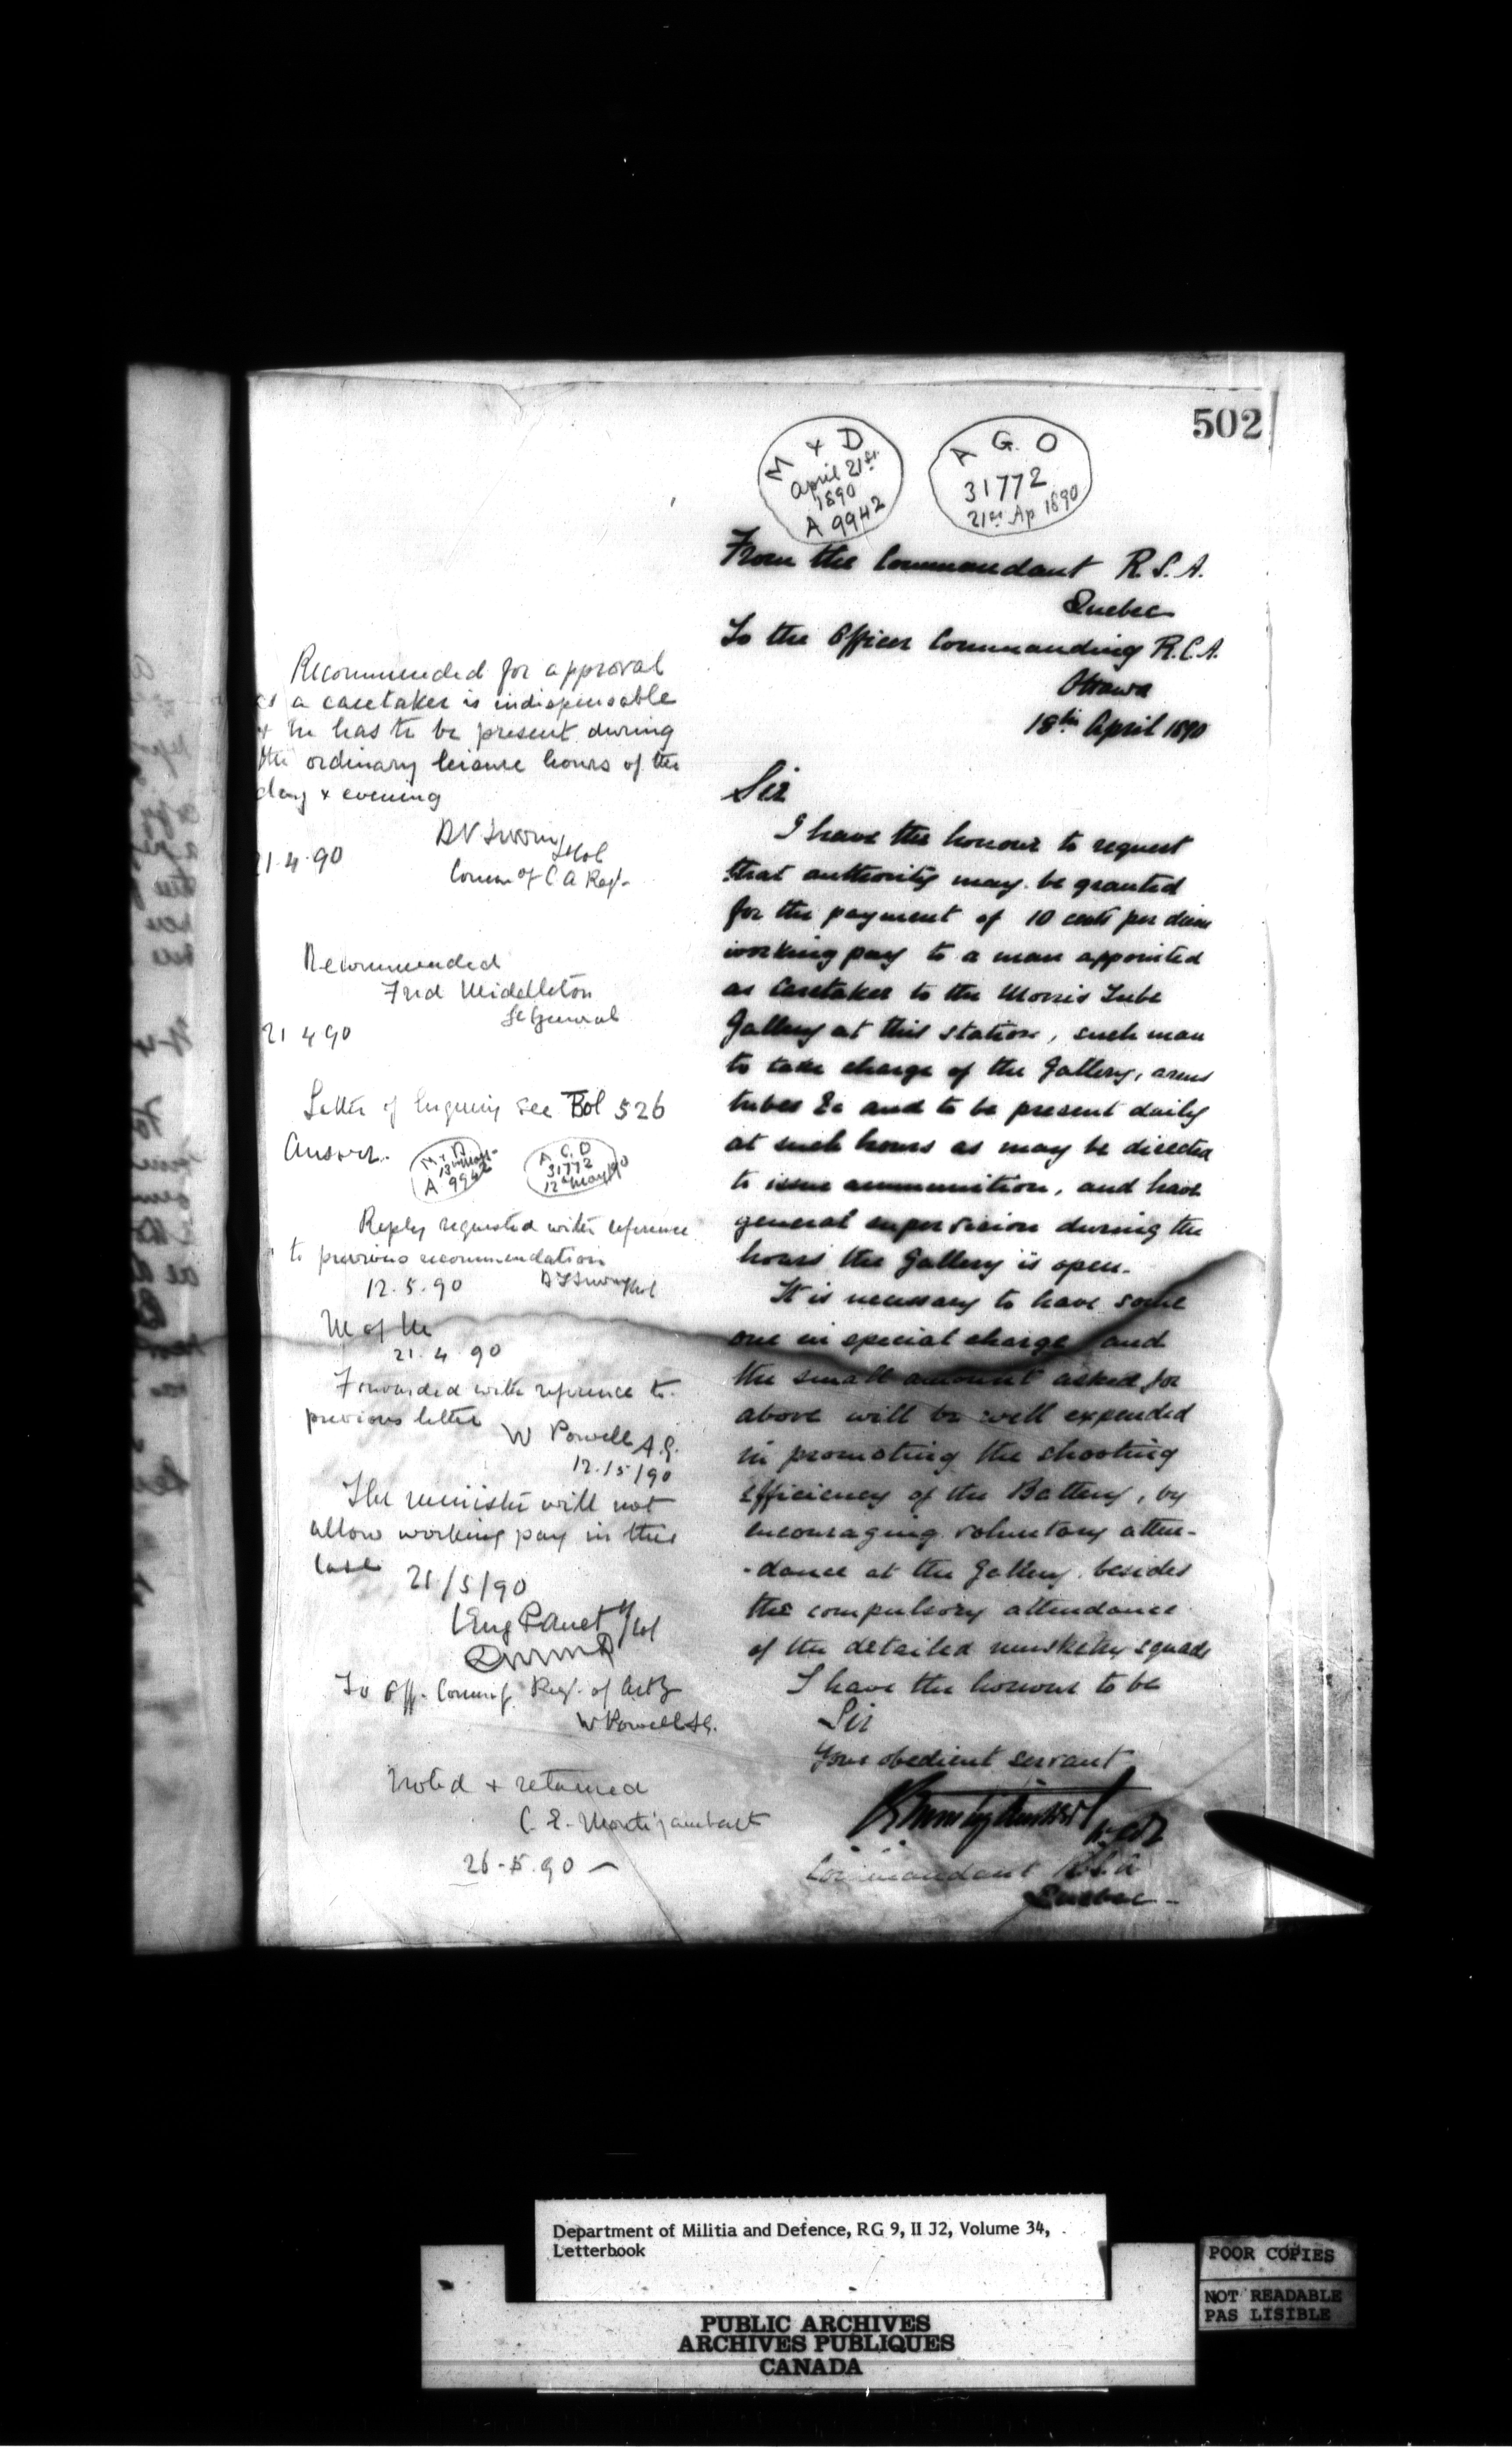 502
M & D
April 21st
1890
A 9942
A G O
31772
21st Ap 1890
From the Commandant R.S.A.
Quebec
To the Officer Commanding R.C.A.
Ottawa
18th April 1890
Sir
I have the honour to request
that authority may be granted
for the payment of 10 cents per diem
working pay to a man appointed
as Caretaker to the Morris Tube
Gallery at this station, such man
to take charge of the Gallery, arms
tubes &c and to be present daily
at such hours as may be directed
to issue ammunition, and have
general supervision during the
hours the Gallery is open.
It is necessary to have some
one in special charge and
the small amount asked for
above will be well expended
in promoting the shooting
efficiency of the Battery, by
encouraging voluntary atten-
-dance at the Gallery besides
the compulsory attendance
of the detailed musketry squads
I have the honour to be
Sir
Your obedient servant
Commandant R.S.A
Quebec -
Recommended for approval
as a caretaker is indispensable
+ he has to be present during
the ordinary leisure hours of the
day + evening
D T Irwin Lt Col
21.4.90
Comm of C.A Regt
Recommended
Fred Middleton
Lt General
21 4 90
Letter of Inquiry see Fol 526
Answer.
M & D
12th May
A 9942
A G O
31772
12th May 90
Reply requested with reference
to previous recommendation
12.5.90 D T Irwin Lt Col
M of M
21.4.90
Forwarded with reference to
previous letter
W Powell A.G.
12/5/90
The minister will not
allow working pay in this
case
21/5/90
Eug Panet Lt/Col
DMM&D
To Off. Commg. Regt. of Arty
W Powell AG.
Noted + returned
C. E. Montizambert
26.5.90 –
Department of Militia and Defence, RG 9, II J2, Volume 34,
Letterbook
PUBLIC ARCHIVES
ARCHIVES PUBLIQUES
CANADA
POOR COPIES
NOT READABLE
PAS LISIBLE